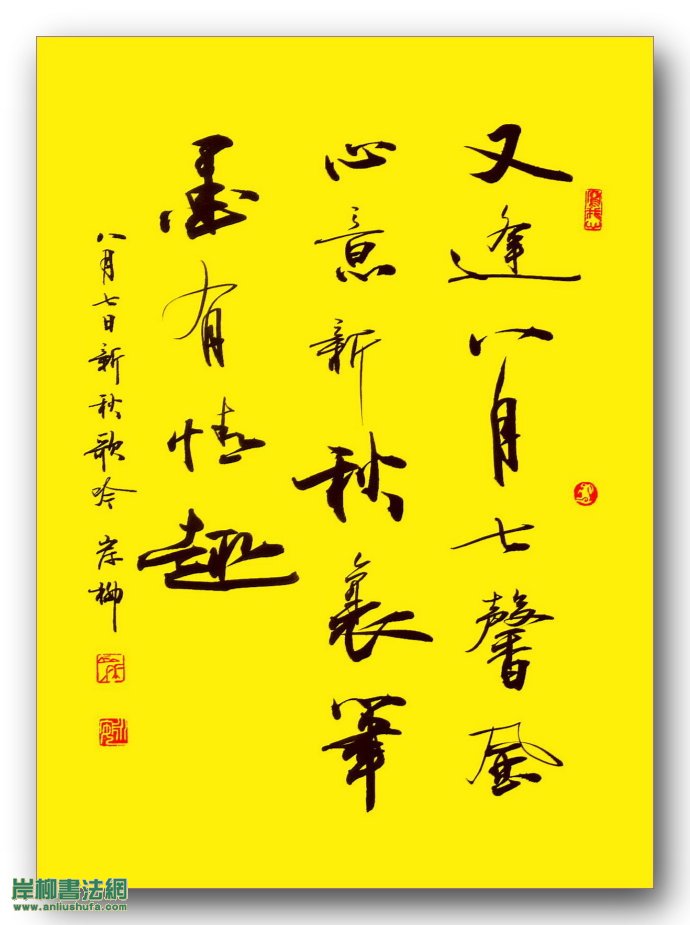 又逢八月七馨風
心意新秋裏筆
墨有情趣
八月七日新秋歌吟 岸柳
岸柳書法網
www.anliushufa.com